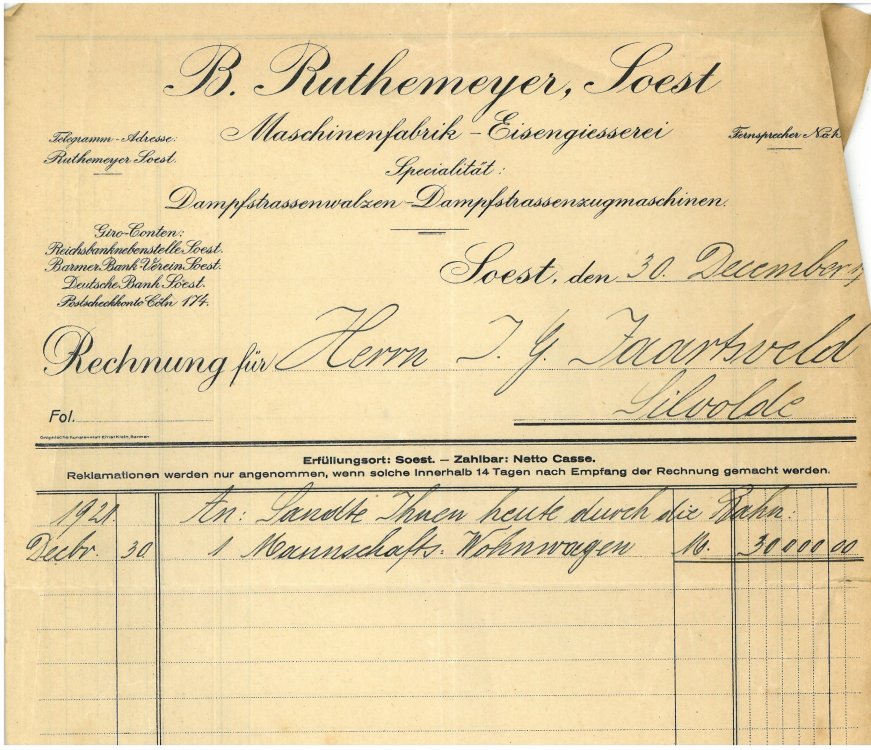 B. Ruthemeyer, Soest
Telegramm-Adresse:
Ruthemeyer Soest.
Maschinenfabrik - Eisengiesserei
Fernsprecher No.
Specialität:
Dampfstrassenwalzen - Dampfstrassenzugmaschinen.
Giro-Conten:
Reichsbanknebenstelle Soest.
Barmer Bank-Verein Soest.
Deutsche Bank Soest.
Postscheckkonto Cöln 174.
Soest, den 30. December
Rechnung für Herrn J. G. Jaartsveld
Silvolde
Fol.
Graphische Kunstanstalt Ernst Klein, Barmen
Erfüllungsort: Soest. – Zahlbar: Netto Casse.
Reklamationen werden nur angenommen, wenn solche innerhalb 14 Tagen nach Empfang der Rechnung gemacht werden.
1921. An: Sandte Ihnen heute durch die Bahn:
Decbr. 30 1 Mannschafts-Wohnwagen M. 30000 00